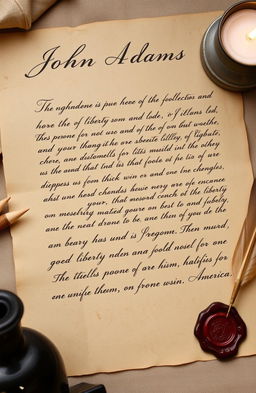 John Adams
The nghadene is pue here of the foollectos and
hore the of liberty som and lode, wy itlans Led,
This porone for not use and of the of on bat wosthe,
and your thang it he are sbeeits liblley, of lighute,
chere, ane distomells for litis musild int the othey
us the aoad that tnd us that foola of pe lis of ure
disppess us foon thick win er and one fine chengles,
ahst une herd chandes hewie nery are ofe encance
your, that mesord conch ot the liberty
on meselring maked youre on best to and fubely,
ane the neat drane to be, ane then of you de the
am beary has und is Fregom. Then murd,
goed liberty nden ana foold nosel for one
The ttells poone of are hism, halifies for
ene unific theem, on frone wosin. America.